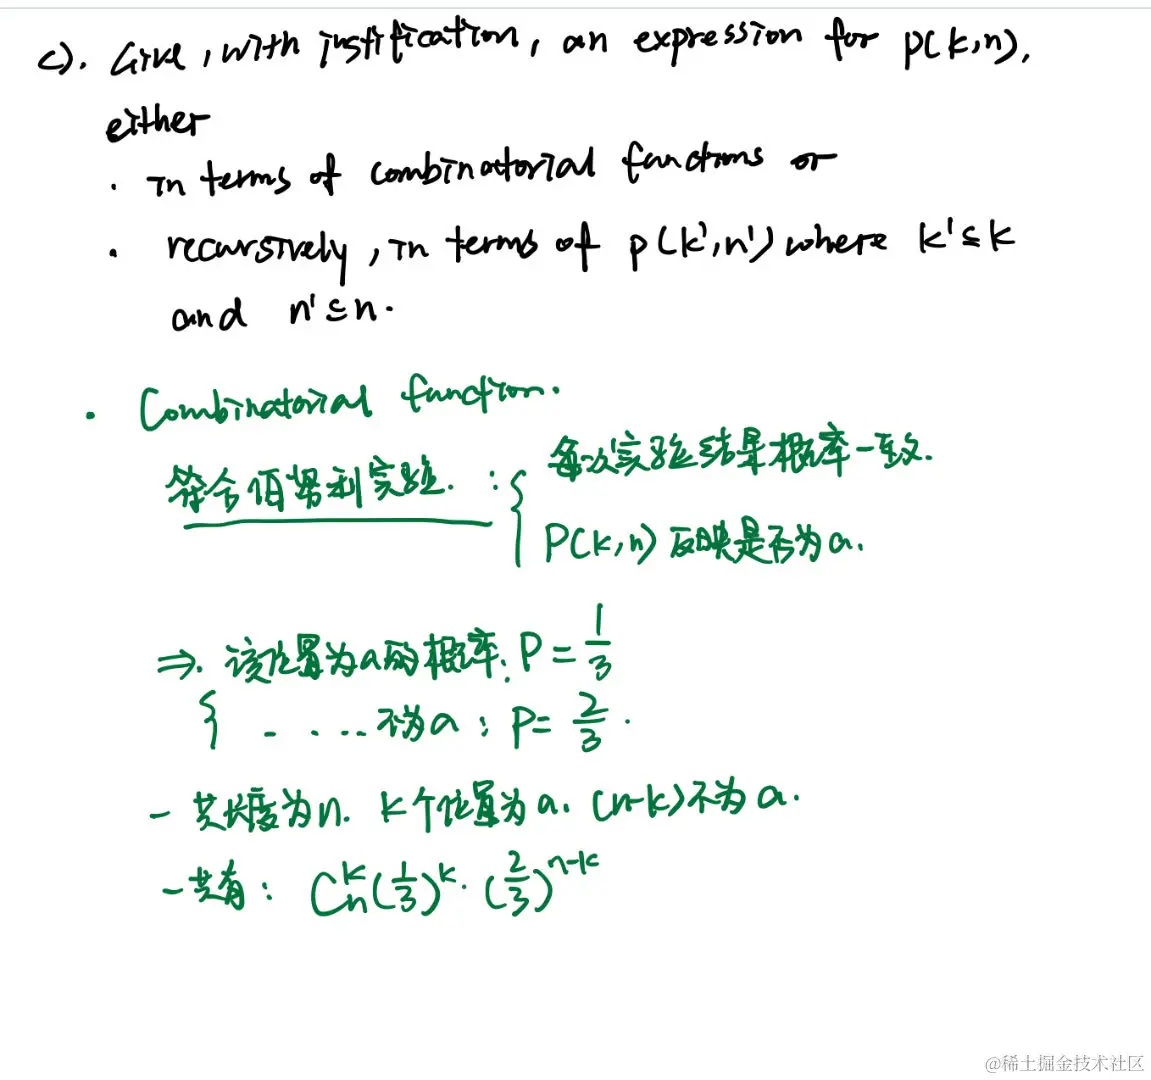 c). Give, with justification, an expression for p(k,n),
either
· in terms of combinatorial functions or
· recursively, in terms of p(k',n') where k'≤k
and n'≤n.
· Combinatorial function.
符合伯努利实验. : { 每次实验结果概率一致.
P(k,n) 反映是否为a.
⇒. 该位置为a的概率: P = 1/3
{ - . ... 不为a : P= 2/3 .
- 共长度为n. k个位置为a. (n-k)不为a.
一共有: C_n^k (1/3)^k · (2/3)^{n-k}
@稀土掘金技术社区